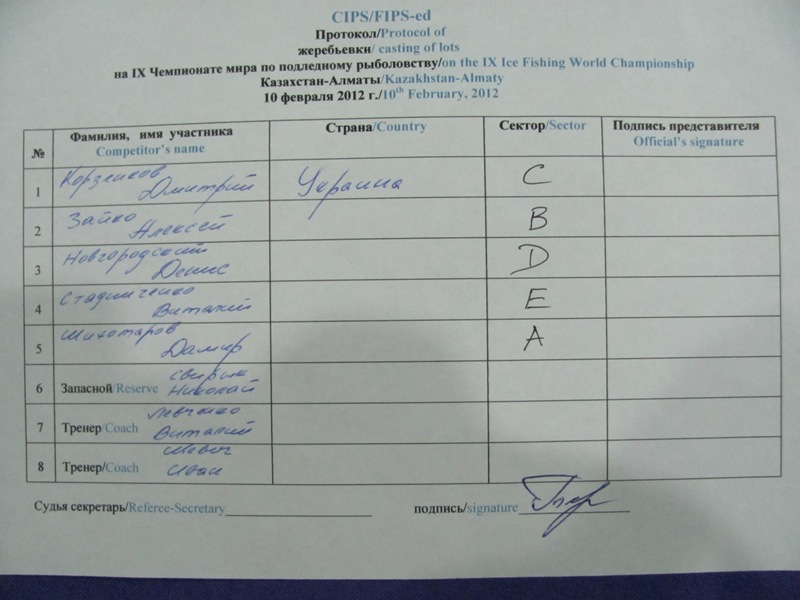 CIPS/FIPS-ed
Протокол/Protocol of
жеребьевки/ casting of lots
на IX Чемпионате мира по подледному рыболовству/on the IX Ice Fishing World Championship
Казахстан-Алматы/Kazakhstan-Almaty
10 февраля 2012 г./10th February, 2012
№ Фамилия, имя участника Страна/Country Сектор/Sector Подпись представителя
Competitor's name Official's signature
1 Корзенков Дмитрий Украина C
2 Зайко Алексей B
3 Новгородский Денис D
4 Стадниченко Виталий E
5 Шихотаров Дамир A
6 Запасной/Reserve Николай
7 Тренер/Coach Левченко Виталий
8 Тренер/Coach Иван
Судья секретарь/Referee-Secretary подпись/signature